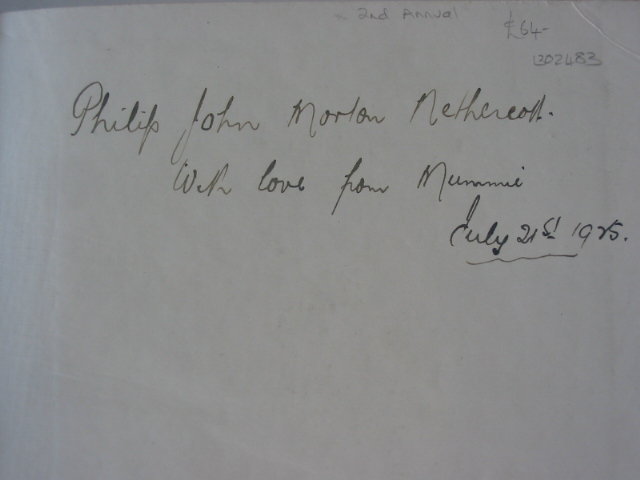 x 2nd Annual
£64-
1302483
Philip John Morton Nethercott.
With love from Mummie
July 21st 1925.